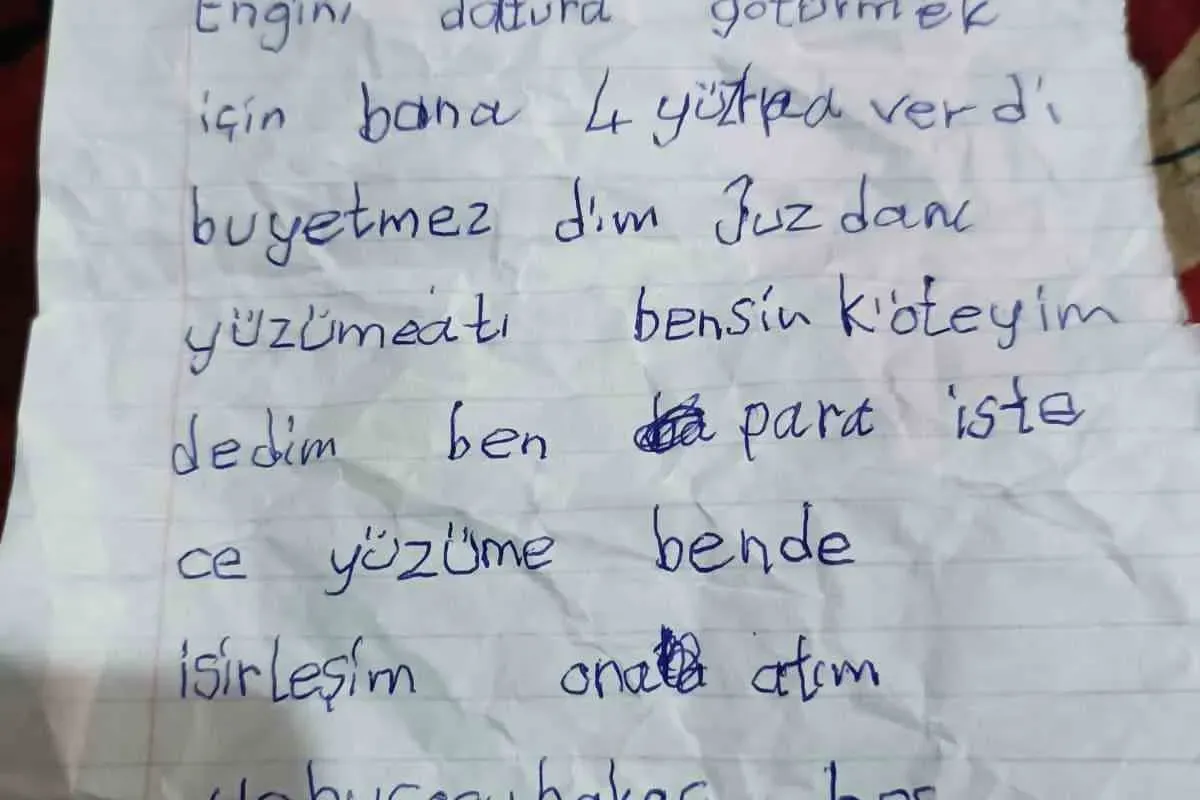 Engini doktura götürmek
için bana 4 yüz para verdi
buyetmez dim Juzdanı
yüzümeatı bensin köteyim
dedim ben para iste
ce yüzüme bende
isirleşim ona atım